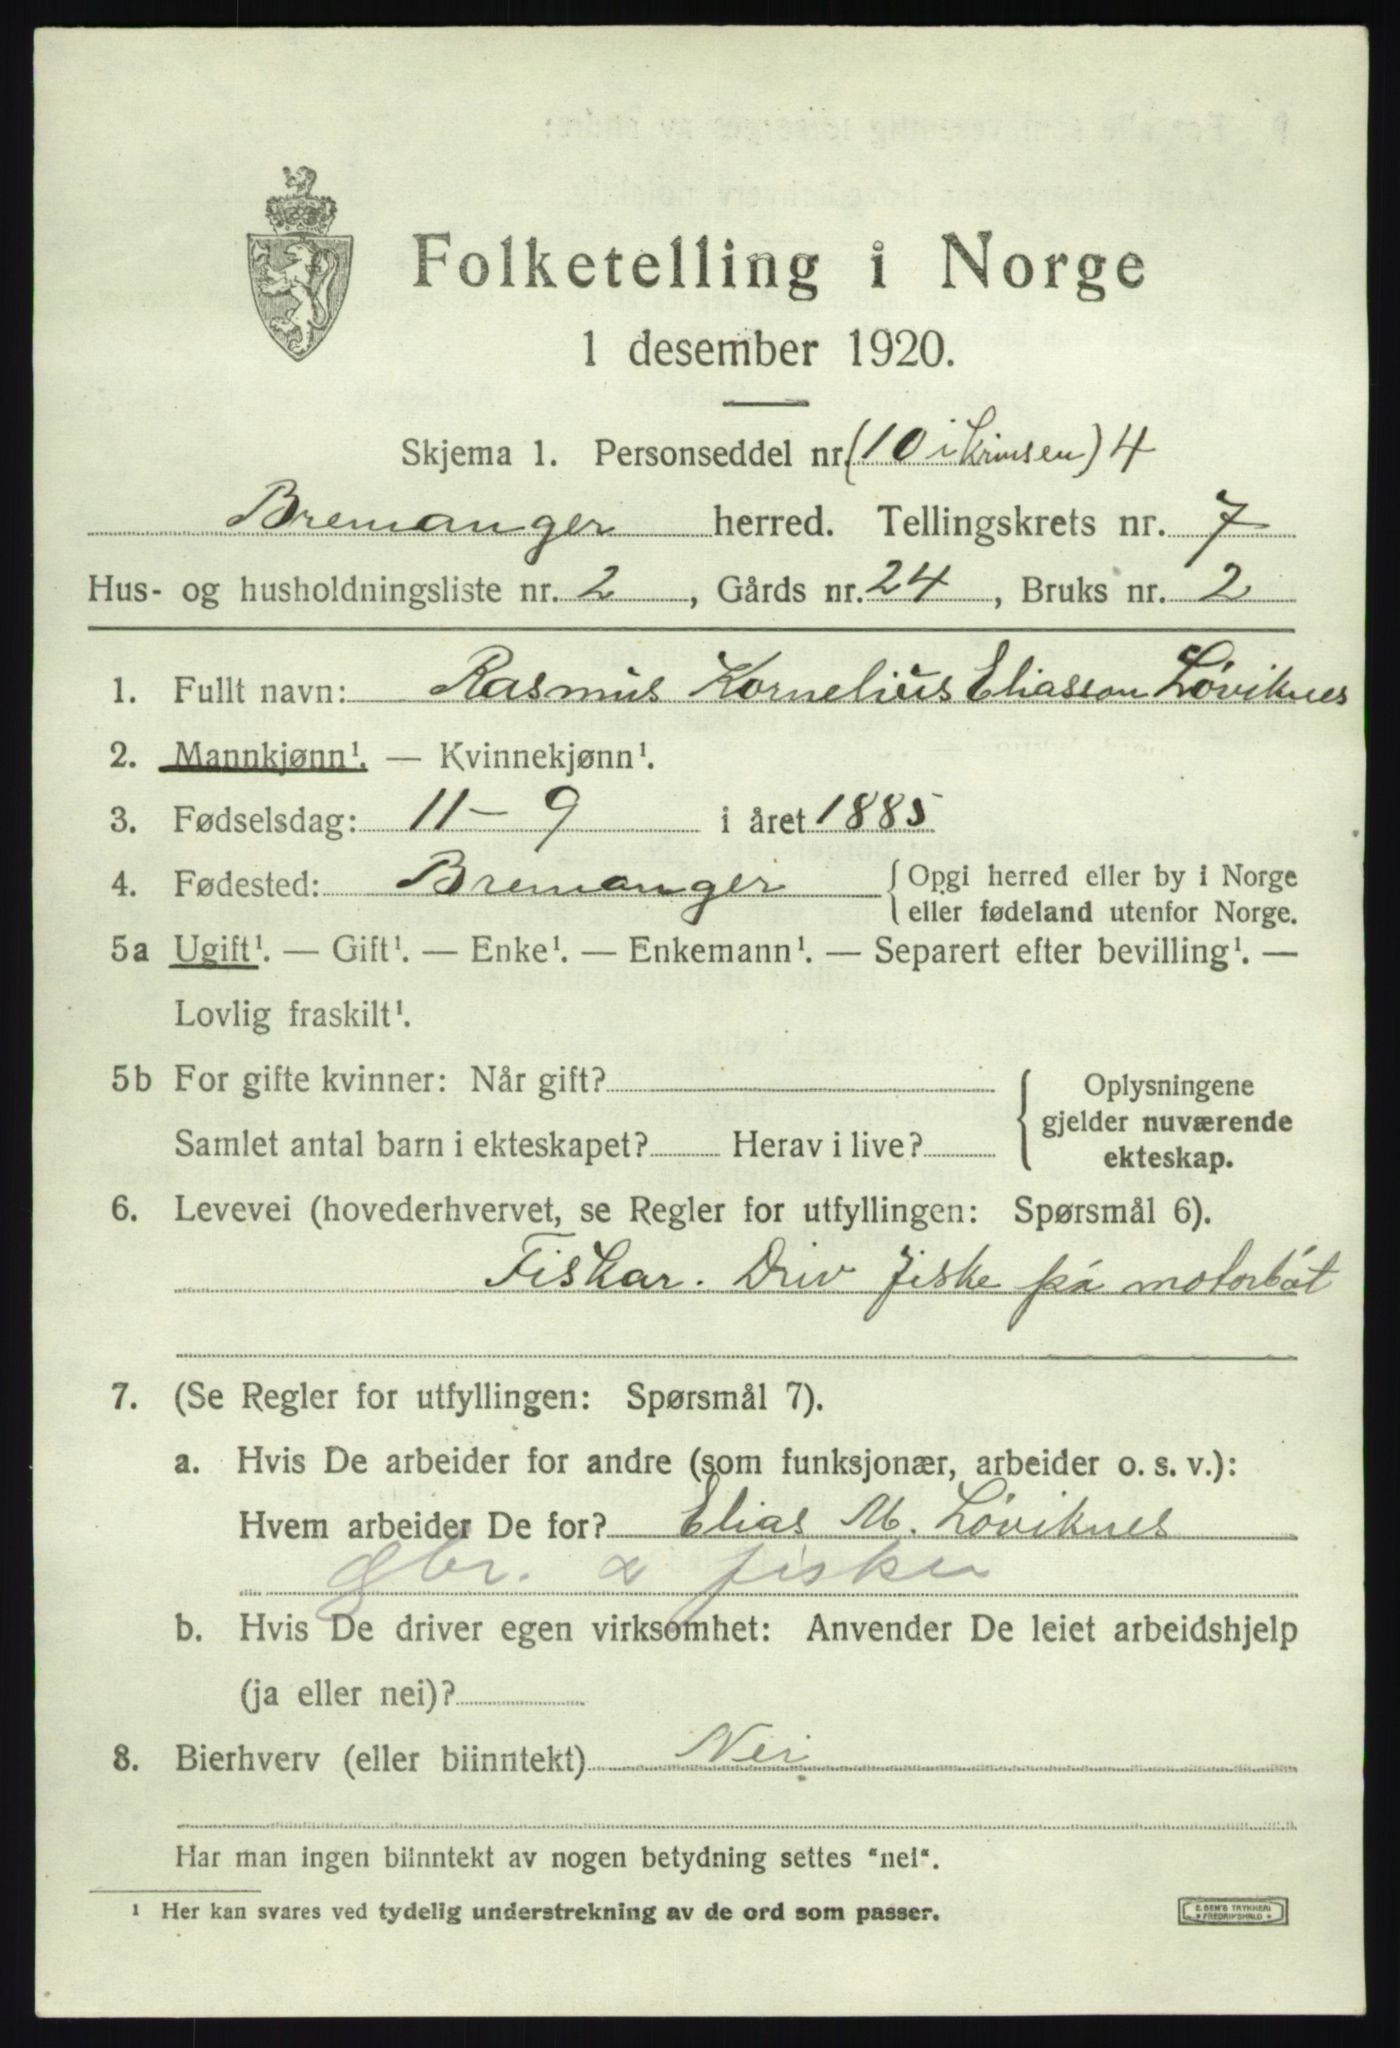 Folketelling i Norge
1 desember 1920.
Skjema 1. Personseddel nr. (10 i krinsen) 4
Bremanger herred. Tellingskrets nr. 7
Hus- og husholdningsliste nr. 2, Gårds nr. 24, Bruks nr. 2
1. Fullt navn: Rasmus Kornelius Eliasson Løviknes
2. Mannkjønn¹. — Kvinnekjønn¹.
3. Fødselsdag: 11 – 9 i året 1885
4. Fødested: Bremanger { Opgi herred eller by i Norge
eller fødeland utenfor Norge.
5a Ugift¹. — Gift¹. — Enke¹. — Enkemann¹. — Separert efter bevilling¹. —
Lovlig fraskilt¹.
5b For gifte kvinner: Når gift?
Samlet antal barn i ekteskapet? Herav i live?
{ Oplysningene
gjelder nuværende
ekteskap.
6. Levevei (hovederhvervet, se Regler for utfyllingen: Spørsmål 6).
Fiskar. Driv fiske på motorbåt
7. (Se Regler for utfyllingen: Spørsmål 7).
a. Hvis De arbeider for andre (som funksjonær, arbeider o. s. v.):
Hvem arbeider De for? Elias M. Løviknes
gbr. & fisker
b. Hvis De driver egen virksomhet: Anvender De leiet arbeidshjelp
(ja eller nei)?
8. Bierhverv (eller biinntekt) Nei
Har man ingen biinntekt av nogen betydning settes "nei".
¹ Her kan svares ved tydelig understrekning av de ord som passer.
E. SEM'S TRYKKERI
* FREDRIKSHALD *